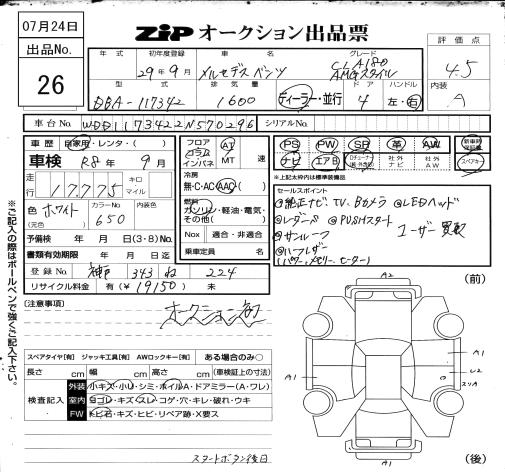 07月24日
ZiP オークション出品票
出品No.
26
評価点
4.5
内装
A
年式 初年度登録 車名 グレード
29年9月 メルセデスベンツ CLA180 AMGスタイル
型式 排気量 ドア ハンドル
DBA-117342 1600 ディーラー・並行 4 左・右
車台No. WDD1173422N570296 シリアルNo.
車歴 自家用・レンタ( )
車検 R8年9月
走行 17775 キロ マイル
色 ホワイト (元色) カラーNo. 650 内装色
予備検 年 月 日(3・8)No.
書類有効期限 年 月 日迄
登録No. 神戸 343 ね 224
リサイクル料金 有(¥19150) 未
フロア コラム インパネ AT MT 速
冷房 無・C・AC・AAC
燃料 ガソリン・軽油・電気・その他( )
Nox 適合・非適合
乗車定員 名
PS PW SR 革 AW 新車時保証書
ナビ エアB 社外ナビ 社外AW スペアキー
※上記太枠内は標準装備品
セールスポイント
@純正ナビ TV Bカメラ @LEDヘッド
@レダーS @PUSHスタート
@サンルーフ ユーザー買取
@ハーフレザー
(パワー、メモリー、ヒーター)
※ご記入の際はボールペンで強くご記入下さい。
(注意事項)
オークション初
スペアタイヤ[有] ジャッキ工具[有] AWロックキー[有] ある場合のみ○
長さ cm 幅 cm 高さ cm (車検証上の寸法)
検査記入
外装 小キズ・小U・シミ・ホイルA・ドアミラー(A・ワレ)
室内 ヨゴレ・キズ・スレ・コゲ・穴・キレ・破れ・ウキ
FW トビ石・キズ・ヒビ・リペア跡・X要ス
スタートボタン後日
(前)
A2
A1
A1
U2
スリA
A1
(後)